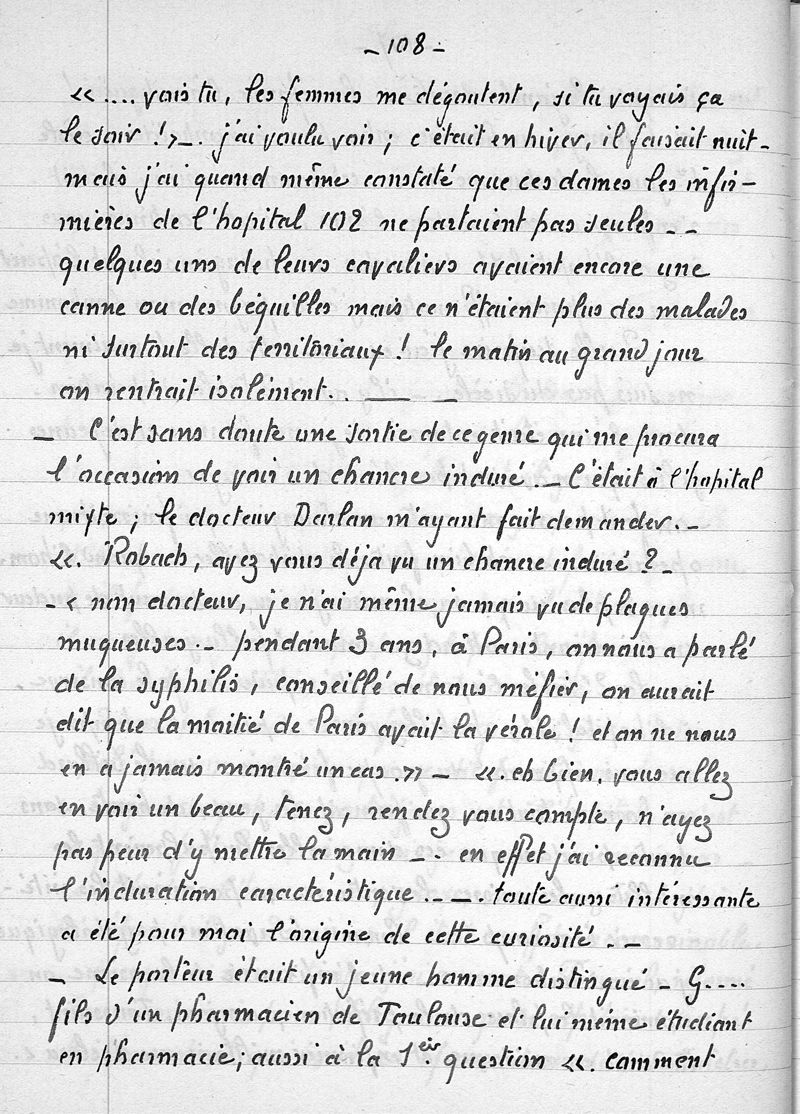 - 108 -
«.... vois tu, les femmes me dégoutent, si tu voyais ça
le soir !» -. j'ai voulu voir ; c'était en hiver, il faisait nuit -
mais j'ai quand même constaté que ces dames les infir-
mières de l'hopital 102 ne partaient pas seules - -
quelques uns de leurs cavaliers avaient encore une
canne ou des béquilles mais ce n'étaient plus des malades
ni surtout des territoriaux ! le matin au grand jour
on rentrait isolément.. — -
- C'est sans doute une sortie de ce genre qui me procura
l'occasion de voir un chancre induré. - C'était à l'hopital
mixte ; le docteur Darlan m'ayant fait demander. -
«. Robach, avez vous déjà vu un chancre induré ? -
- « non docteur, je n'ai même jamais vu de plaques
muqueuses. - pendant 3 ans, à Paris, on nous a parlé
de la syphilis, conseillé de nous méfier, on aurait
dit que la moitié de Paris avait la vérole ! et on ne nous
en a jamais montré un cas.» - «. eh bien, vous allez
en voir un beau, tenez, rendez vous compte, n'ayez
pas peur d'y mettre la main -. en effet j'ai reconnu
l'induration caractéristique .-.-. toute aussi intéressante
a été pour moi l'origine de cette curiosité . - -
- Le porteur était un jeune homme distingué - G....
fils d'un pharmacien de Toulouse et lui même étudiant
en pharmacie ; aussi à la 1èr question «. comment